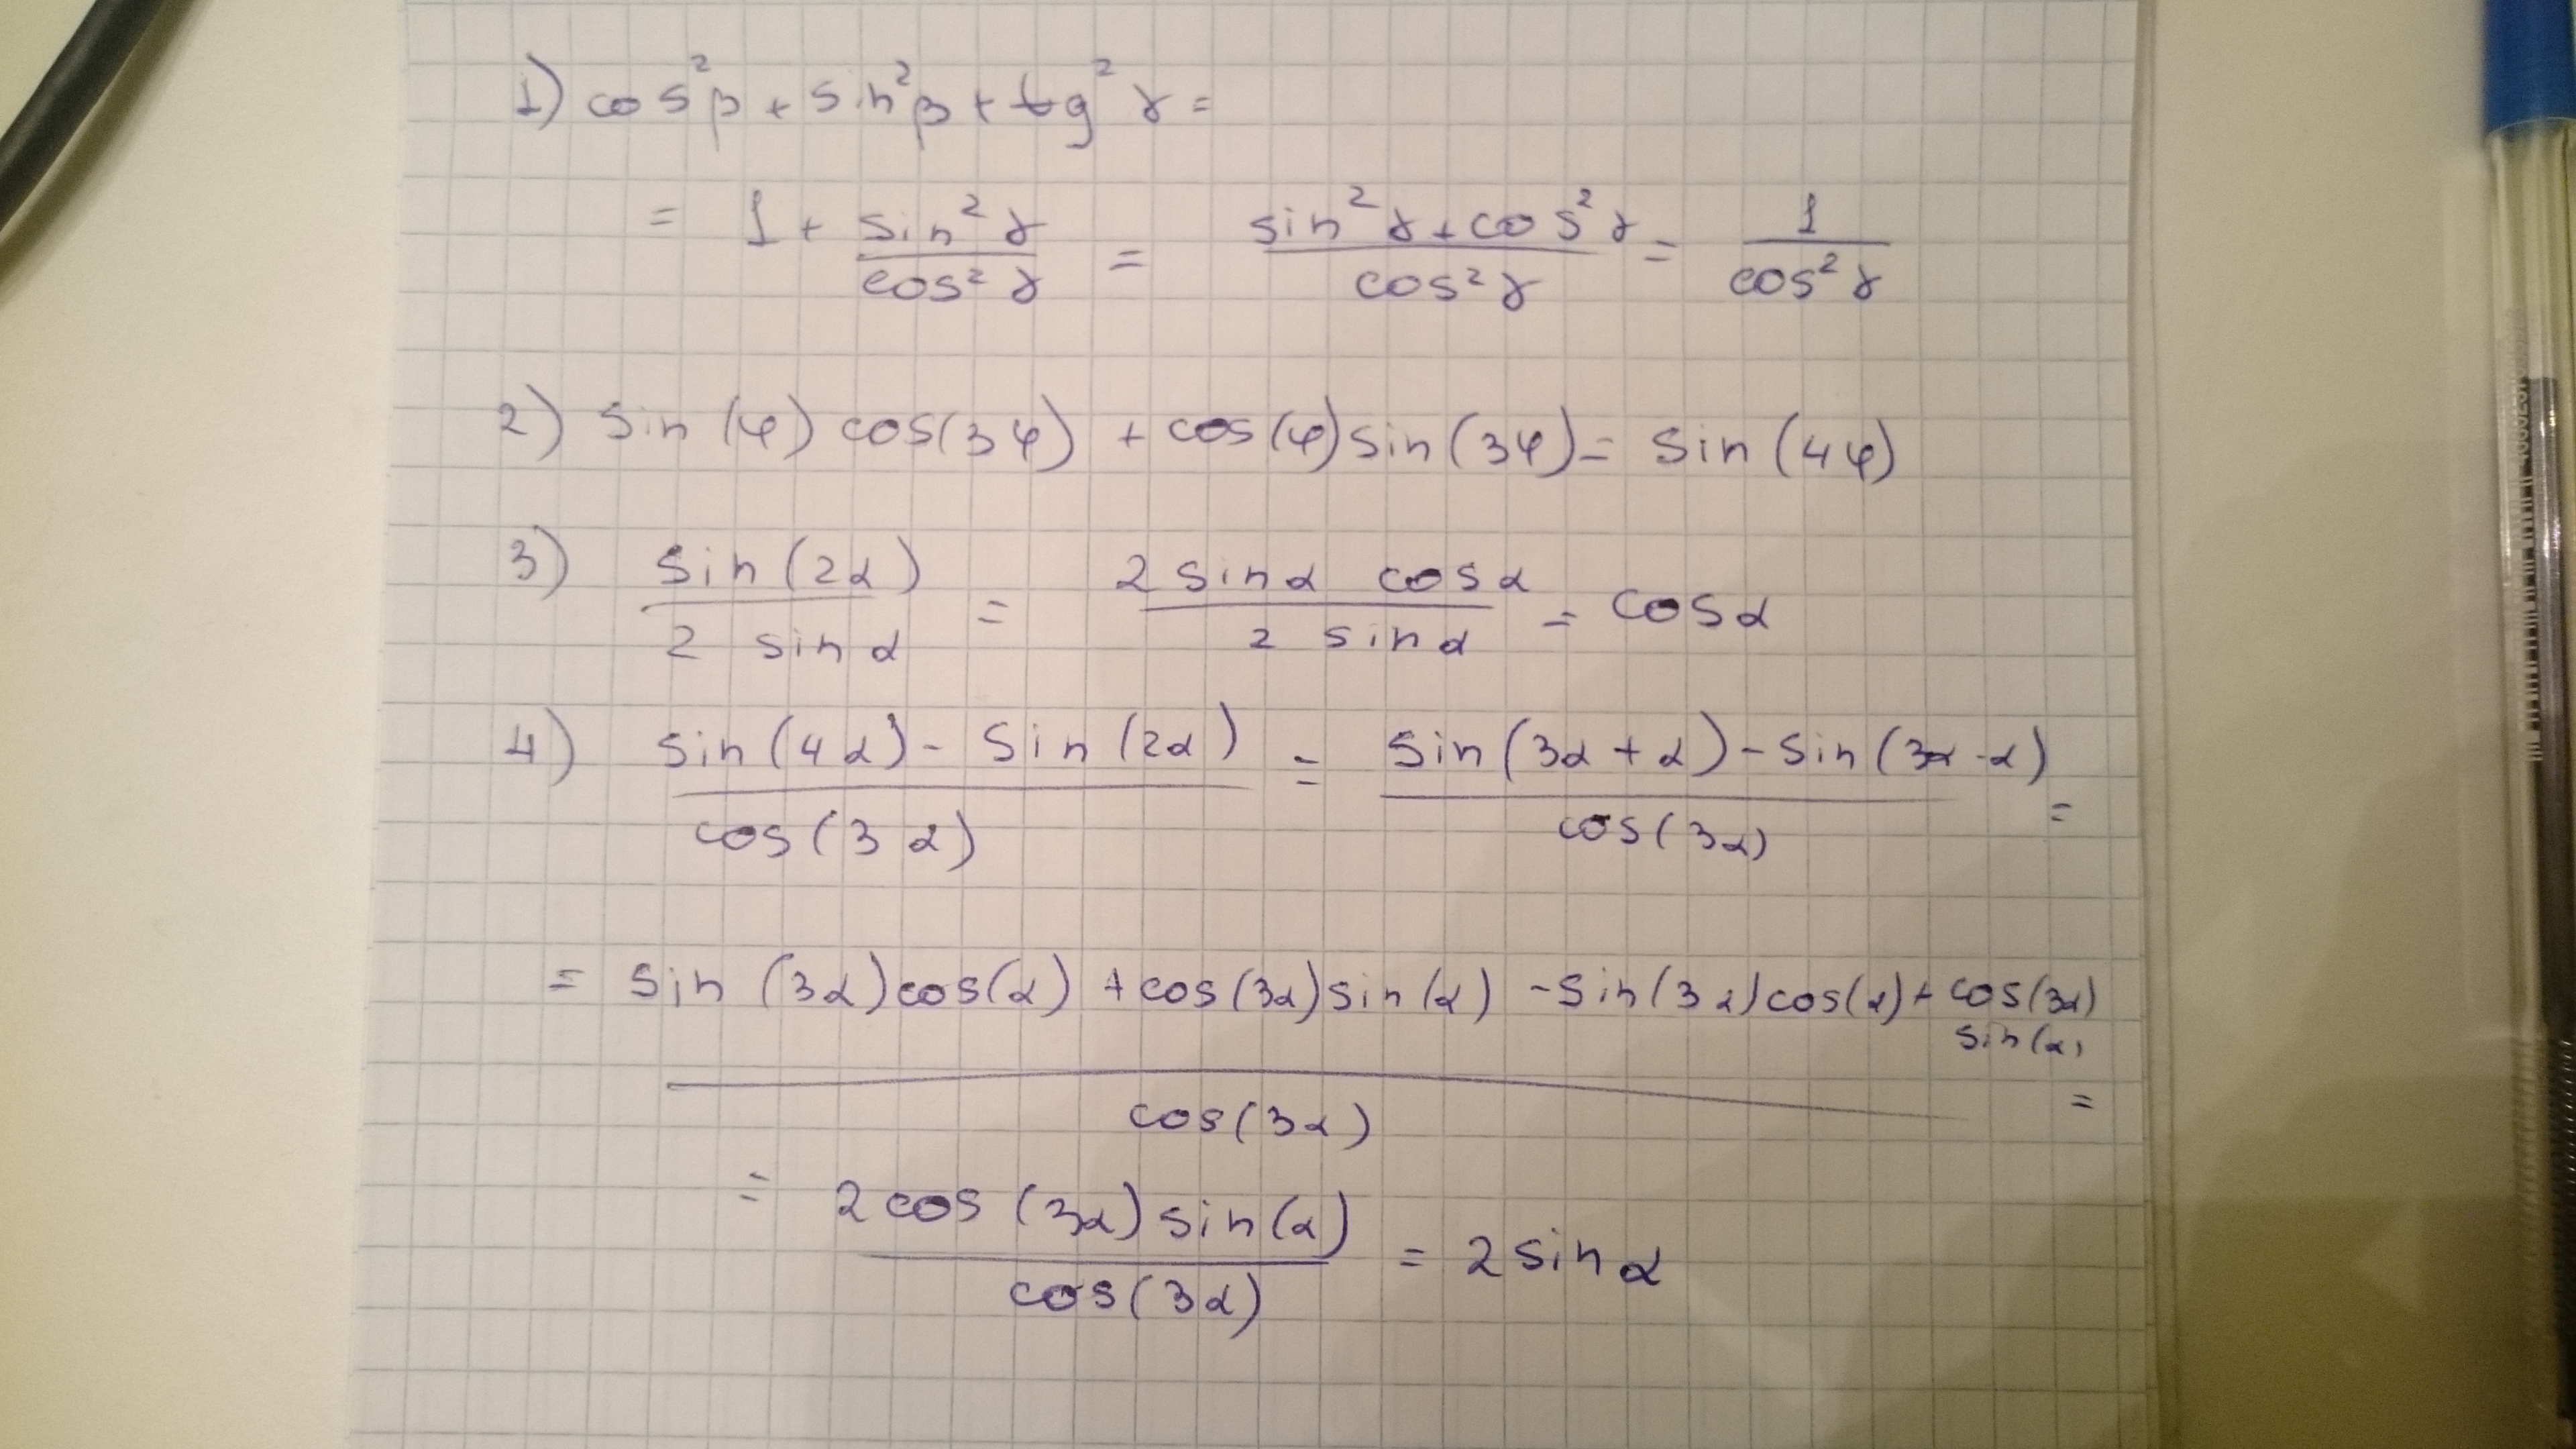 1) cos²β + sin²β + tg²γ =
= 1 + sin²γ / cos²γ = (sin²γ + cos²γ) / cos²γ = 1 / cos²γ
2) sin(φ) cos(3φ) + cos(φ) sin(3φ) = sin(4φ)
3) sin(2α) / 2 sinα = 2 sinα cosα / 2 sinα = cosα
4) sin(4α) - sin(2α) / cos(3α) = sin(3α + α) - sin(3α - α) / cos(3α) =
= sin(3α)cos(α) + cos(3α)sin(α) - sin(3α)cos(α) + cos(3α) sin(α) / cos(3α) =
= 2cos(3α)sin(α) / cos(3α) = 2 sinα